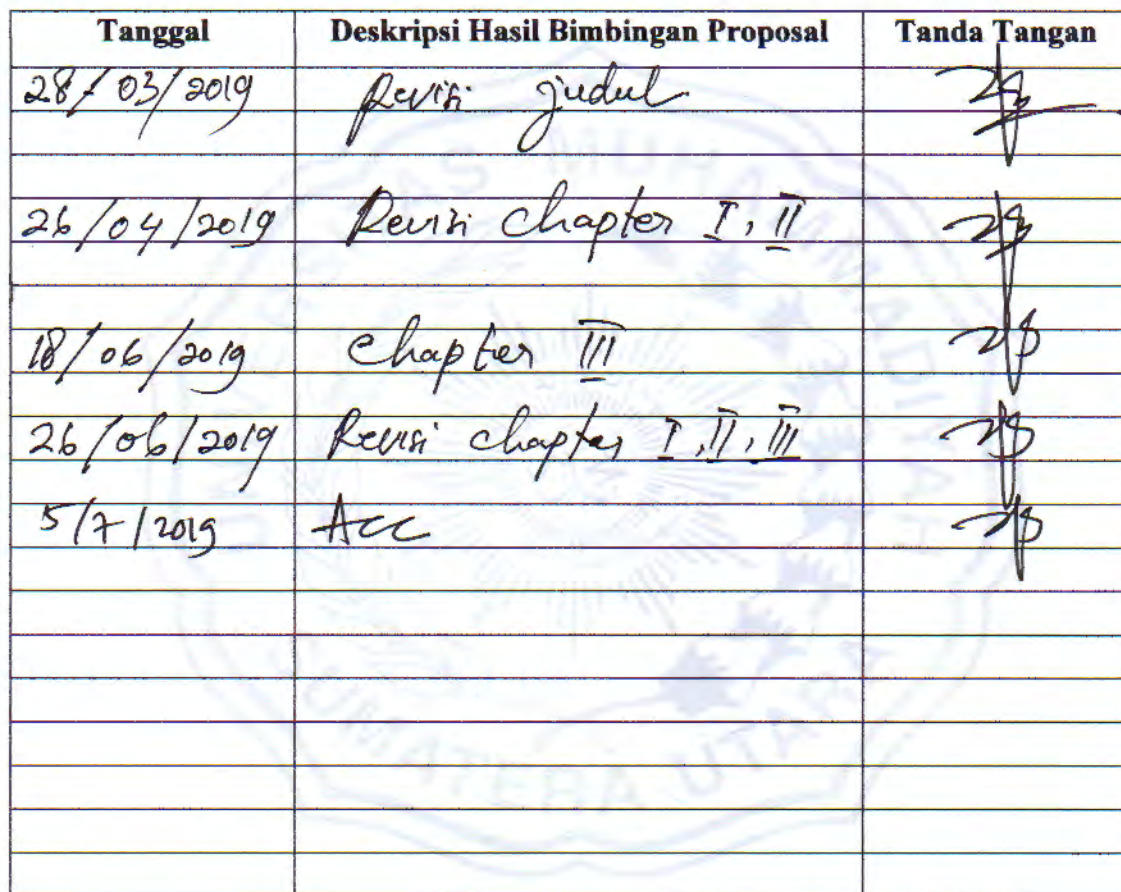 Tanggal Deskripsi Hasil Bimbingan Proposal Tanda Tangan
28/03/2019 Revisi judul
26/04/2019 Revisi chapter I, II
18/06/2019 chapter III
26/06/2019 Revisi chapter I, II, III
5/7/2019 Acc
MUHAMMADIYAH
SUMATERA UTARA